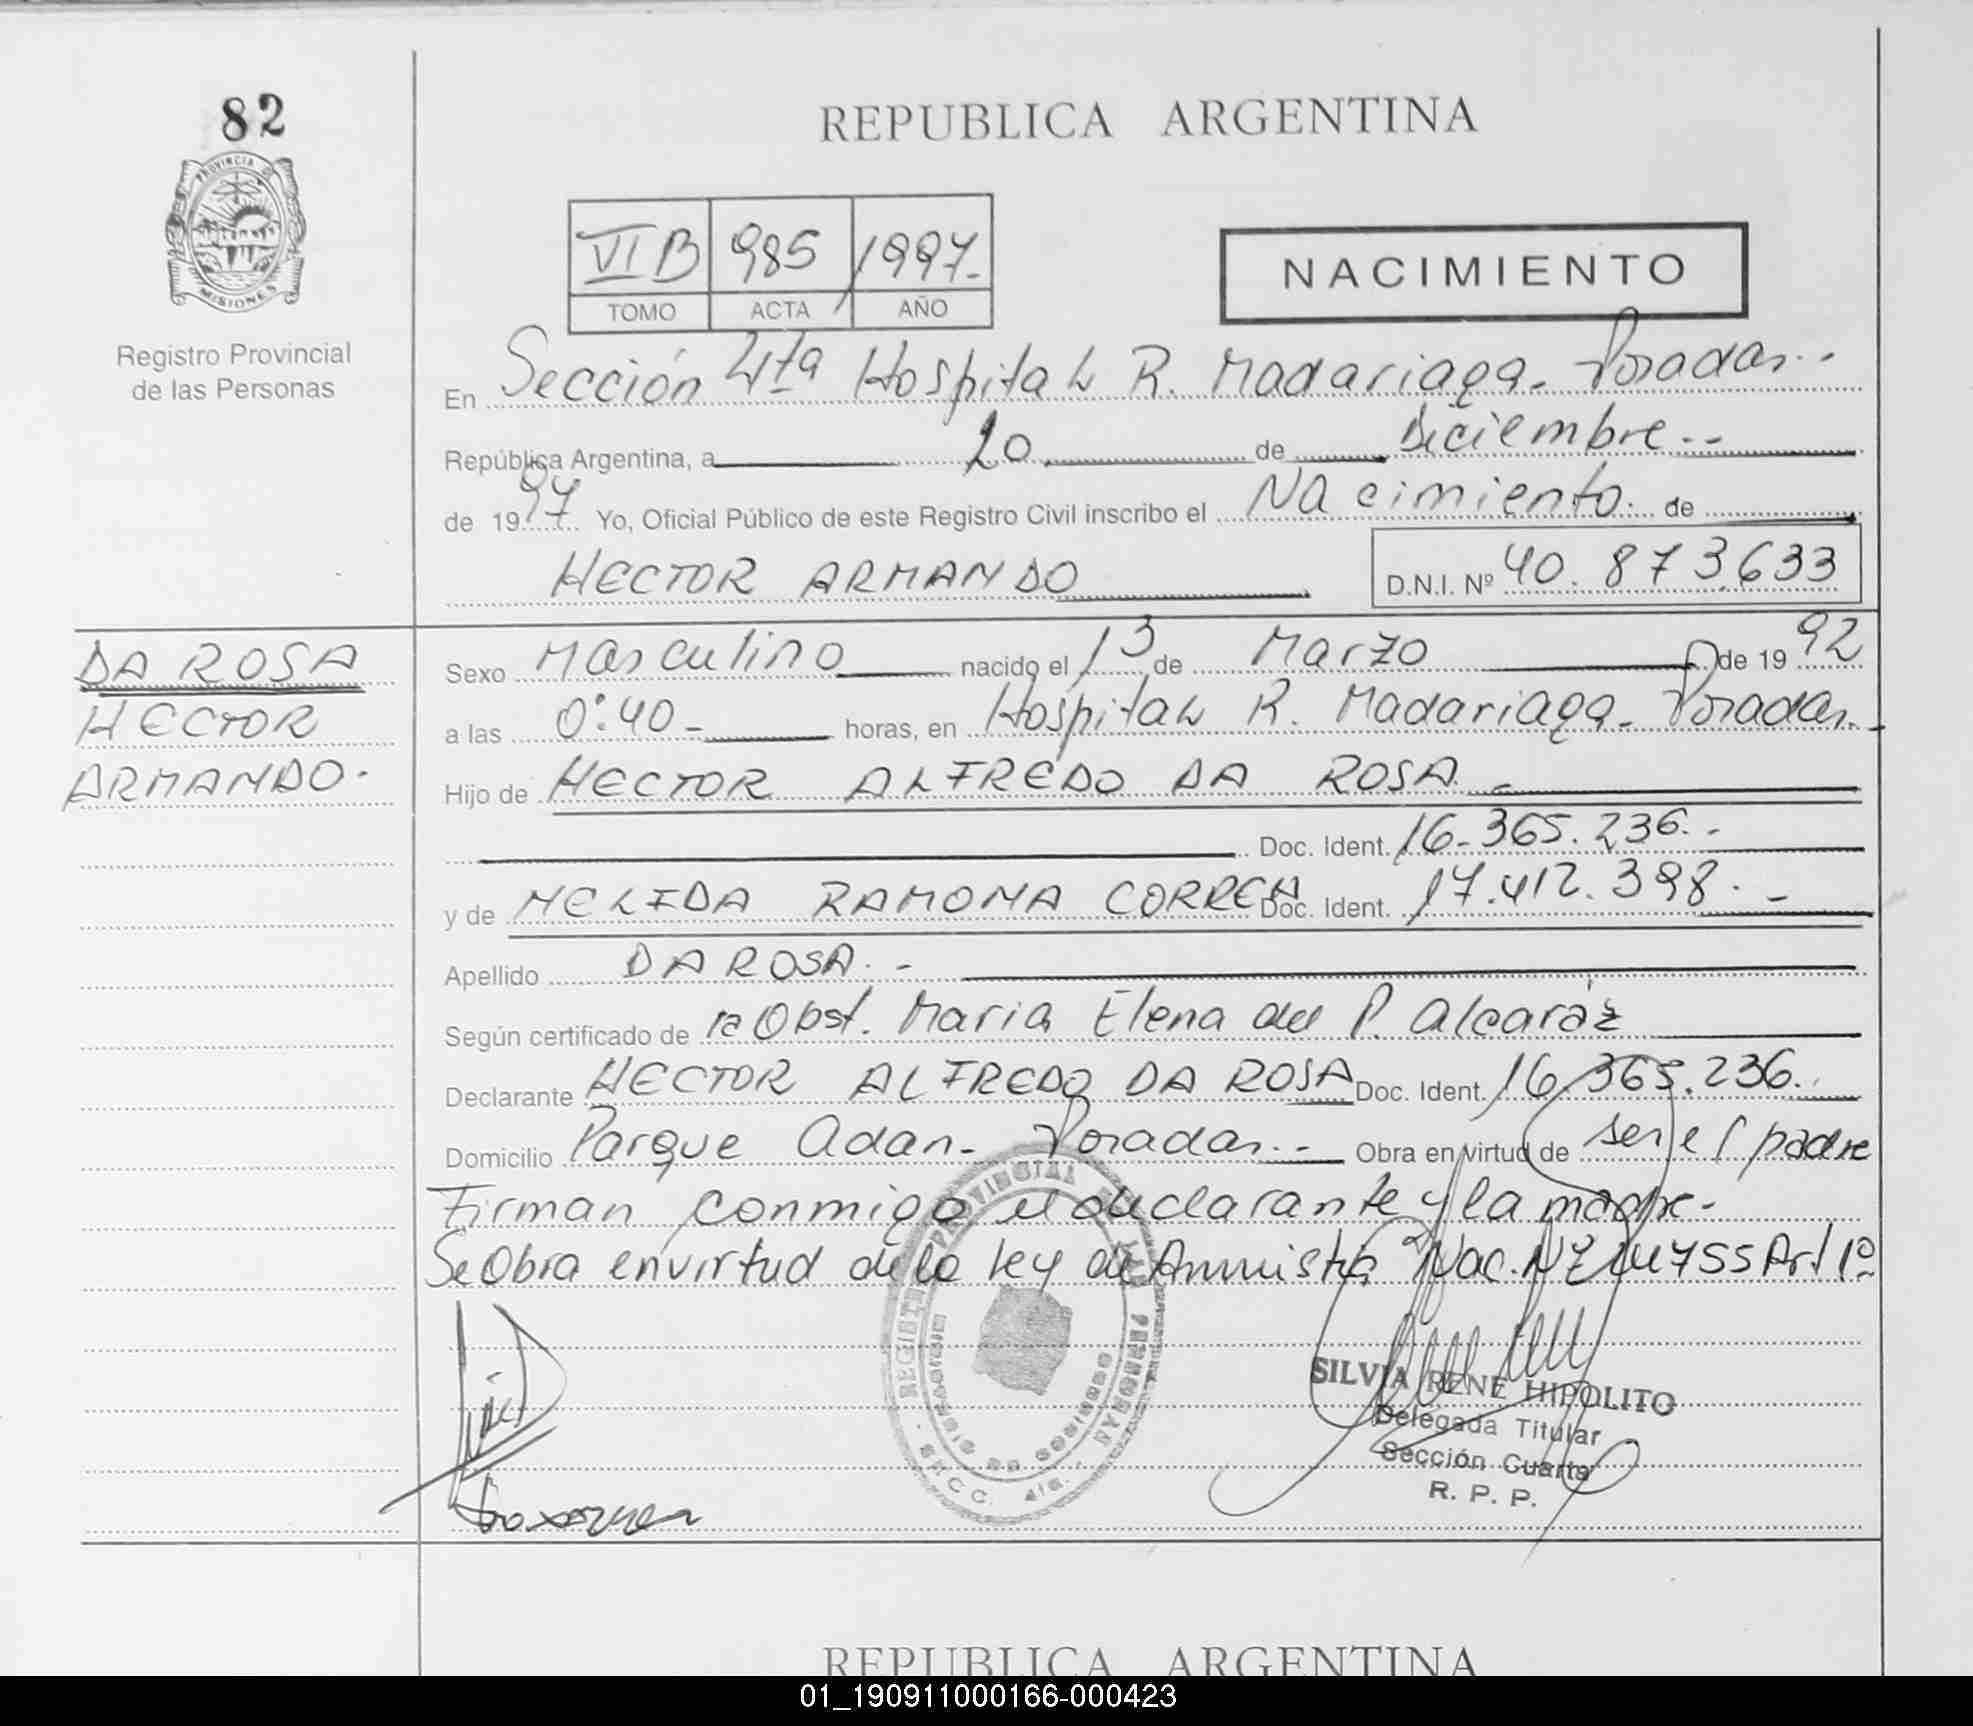 82
PROVINCIA D
MISIONES
Registro Provincial
de las Personas
REPUBLICA ARGENTINA
VI B 985 1997.-
TOMO ACTA AÑO
NACIMIENTO
En Sección 4ta Hospital R. Madariaga. Posadas.-
República Argentina, a 20 de Diciembre.--
de 1997 Yo, Oficial Público de este Registro Civil inscribo el Nacimiento. de
HECTOR ARMANDO
D.N.I. Nº 40.873.633
DA ROSA
HECTOR
ARMANDO.
Sexo Masculino nacido el 13 de Marzo de 1992
a las 0:40- horas, en Hospital R. Madariaga. Posadas.-
Hijo de HECTOR ALFREDO DA ROSA.-
Doc. Ident. 16.365.236.-
y de NELIDA RAMONA CORREA Doc. Ident. 17.412.398.-
Apellido DA ROSA.-
Según certificado de la Obst. Maria Elena del P. Alcaráz
Declarante HECTOR ALFREDO DA ROSA Doc. Ident. 16.365.236.
Domicilio Parque Adan- Posadas.- Obra en virtud de ser el padre
Firman conmigo el declarante y la madre.-
Se Obra en virtud de la ley de Amnistía Nac. Nº 24755 Art 1º
REGISTRO PROVINCIAL DE LAS PERSONAS
SILVIA RENE HIPOLITO
Delegada Titular
Sección Cuarta
R. P. P.
REPUBLICA ARGENTINA
01_190911000166-000423